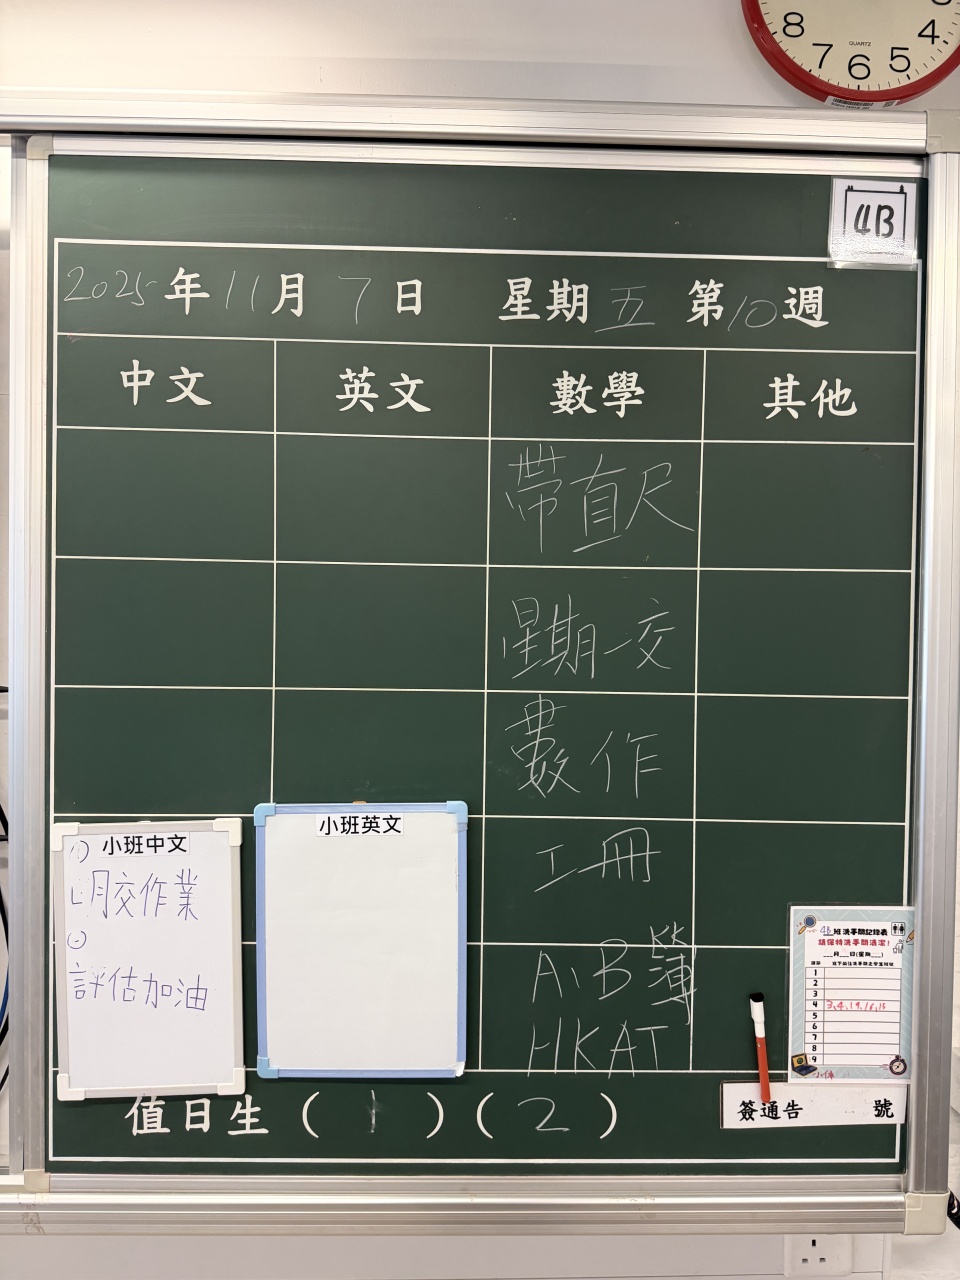 8 7 6 5 4
QUARTZ
4B
2025年11月7日 星期五 第10週
中文 英文 數學 其他
帶直尺
星期一交
數作
工冊
A、B簿
HKAT
小班中文
月交作業
評估加油
小班英文
4B班洗手間記錄表
請保持洗手間清潔!
___月___日(星期___)
課節 寫下前往洗手間之學生班號
1
2
3
4 3,4,19,16,15
5
6
7
8
9
小休
值日生(1)(2)
簽通告 號